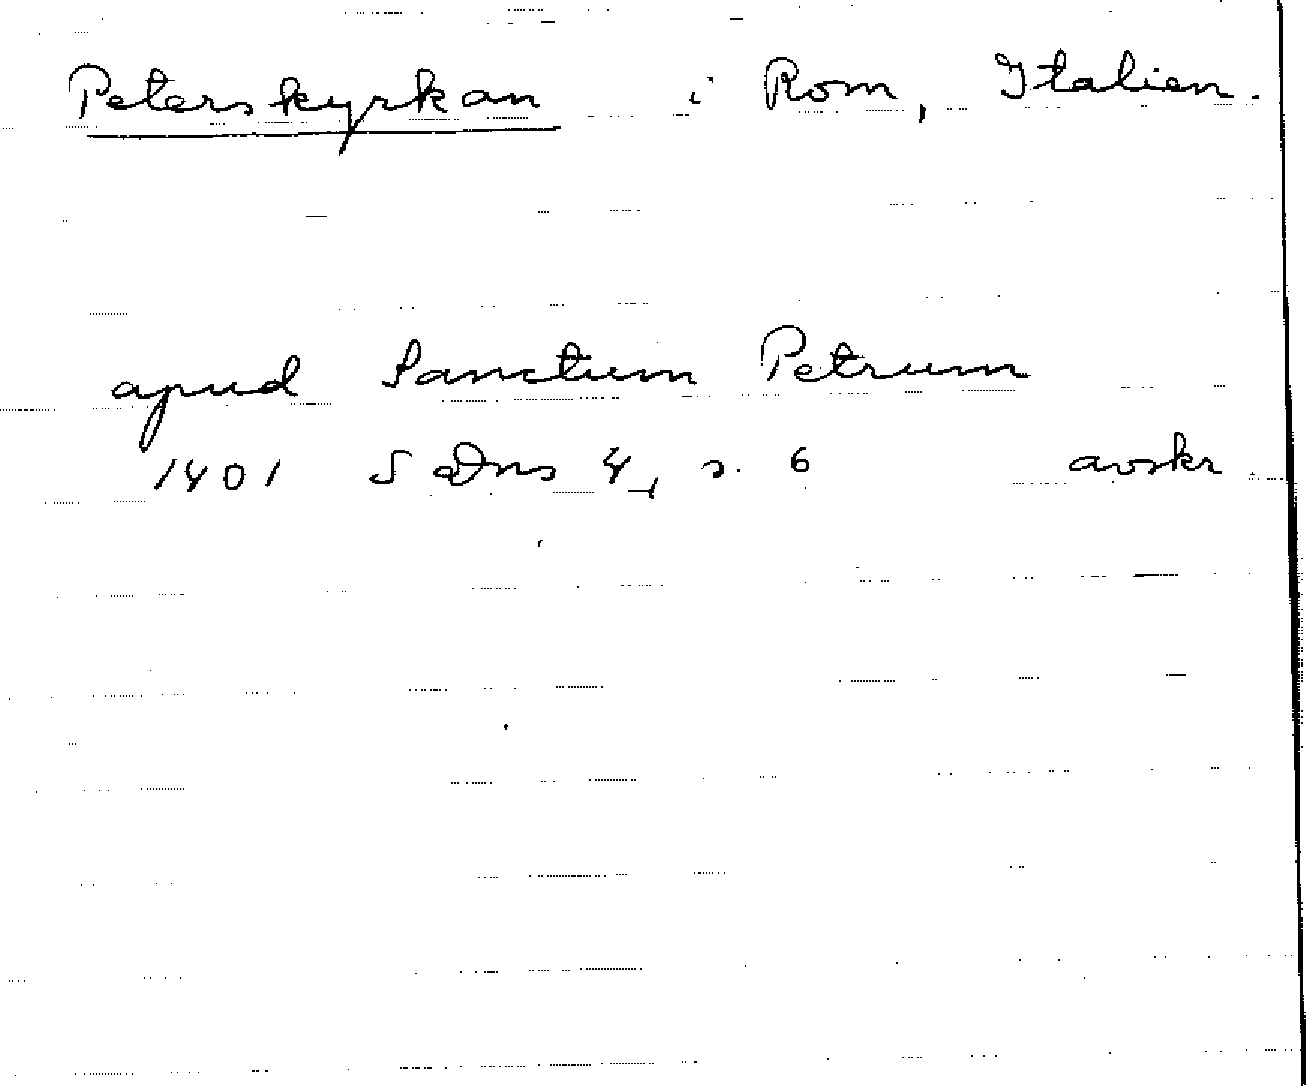 Peterskyrkan i Rom, Italien.
apud Sanctum Petrum
1401 SDns 4, s. 6 avskr